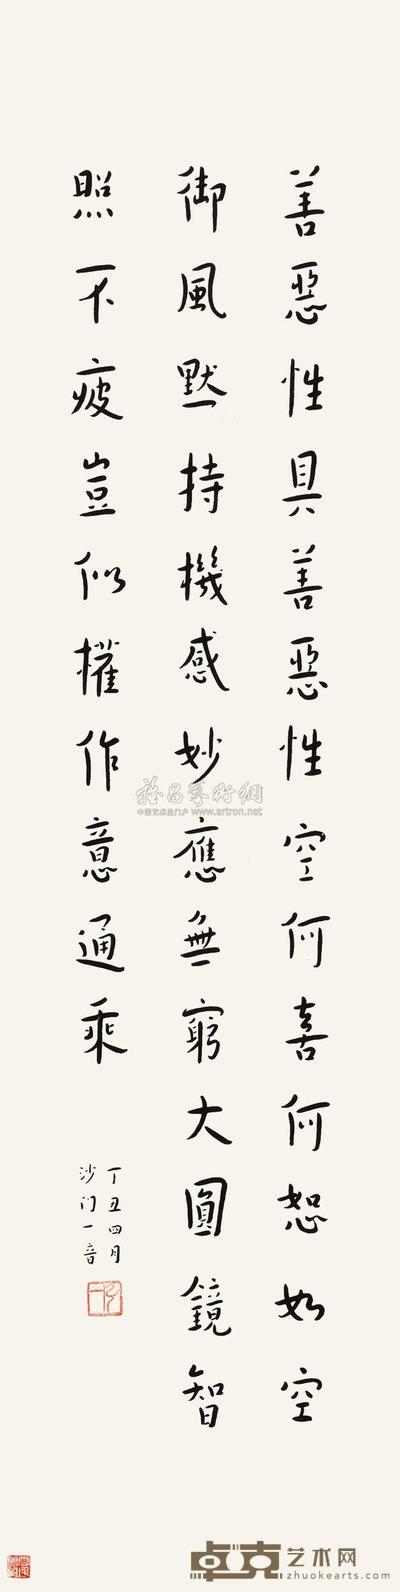 善惡性具善惡性空何喜何恕如空
御風默持機感妙應無窮大圓鏡智
照不疲豈似權作意通乘
丁丑四月
沙门一音
雅昌藝術網
中国艺术品门户 www.artron.net
卓克艺术网
zhuokearts.com